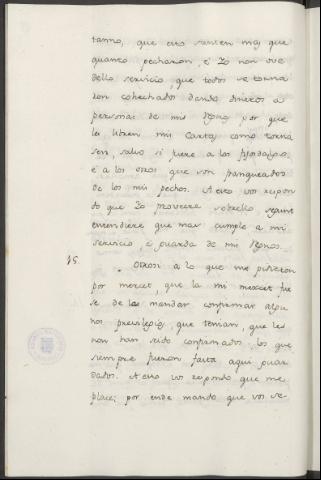 tanno, que esto sauten mas que
quanto pecharon, é Yo non ove
dello servicio, que todos se torna
ron cohechados dando dineros a
personas de mis Regnos, por que
les libren mis Cartas como torna
sen, salvo si fuere a los fijosdalgo,
e a los otros que son franqueados
de los mis pechos. A esto vos respon
do que Yo proveere sobrello, segunt
entendiere que mas cumple a mi
servicio, e guarda de mis Regnos.
15. Otrosi a lo que me pidieron
por merced, que la mi merced fue
se de les mandar confirmar algu
nos previlegios, que tenian, que les
non han sido confirmados, los que
siempre fueron fasta aqui guar
dados. A esto vos respondo que me
place; por ende mando que vos se-